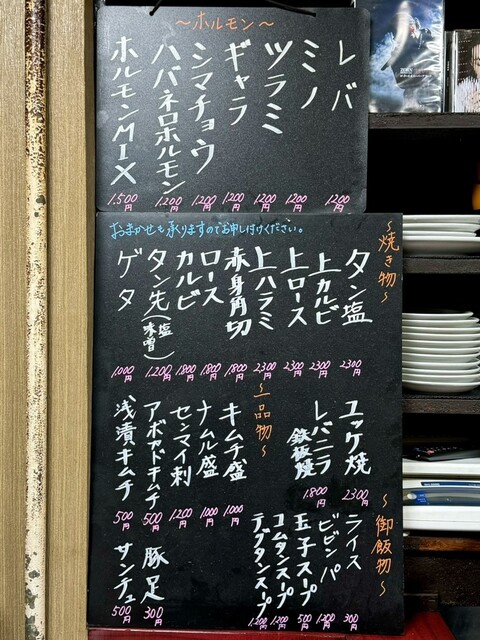 ～ホルモン～
レバ 1,200円
ミノ 1,200円
ツラミ 1,200円
ギャラ 1,200円
シマチョウ 1,200円
ハバネロホルモン 1,200円
ホルモンMIX 1,500円
おまかせも承りますのでお申し付けください。
～焼き物～
タン塩 2300円
上カルビ 2300円
上ロース 2300円
上ハラミ 2300円
赤身角切 1,800円
ロース 1,800円
カルビ 1,800円
タン先(塩味噌) 1,200円
ゲタ 1,000円
ユッケ焼 2300円
レバニラ鉄板焼 1,800円
～一品物～
キムチ盛 1000円
ナムル盛 1000円
センマイ刺 1200円
アボカドキムチ 500円
浅漬キムチ 500円
豚足 300円
サンチュ 500円
～御飯物～
ライス 300円
ビビンバ 1,200円
玉子スープ 500円
コムタンスープ 1,200円
テグタンスープ 1,200円